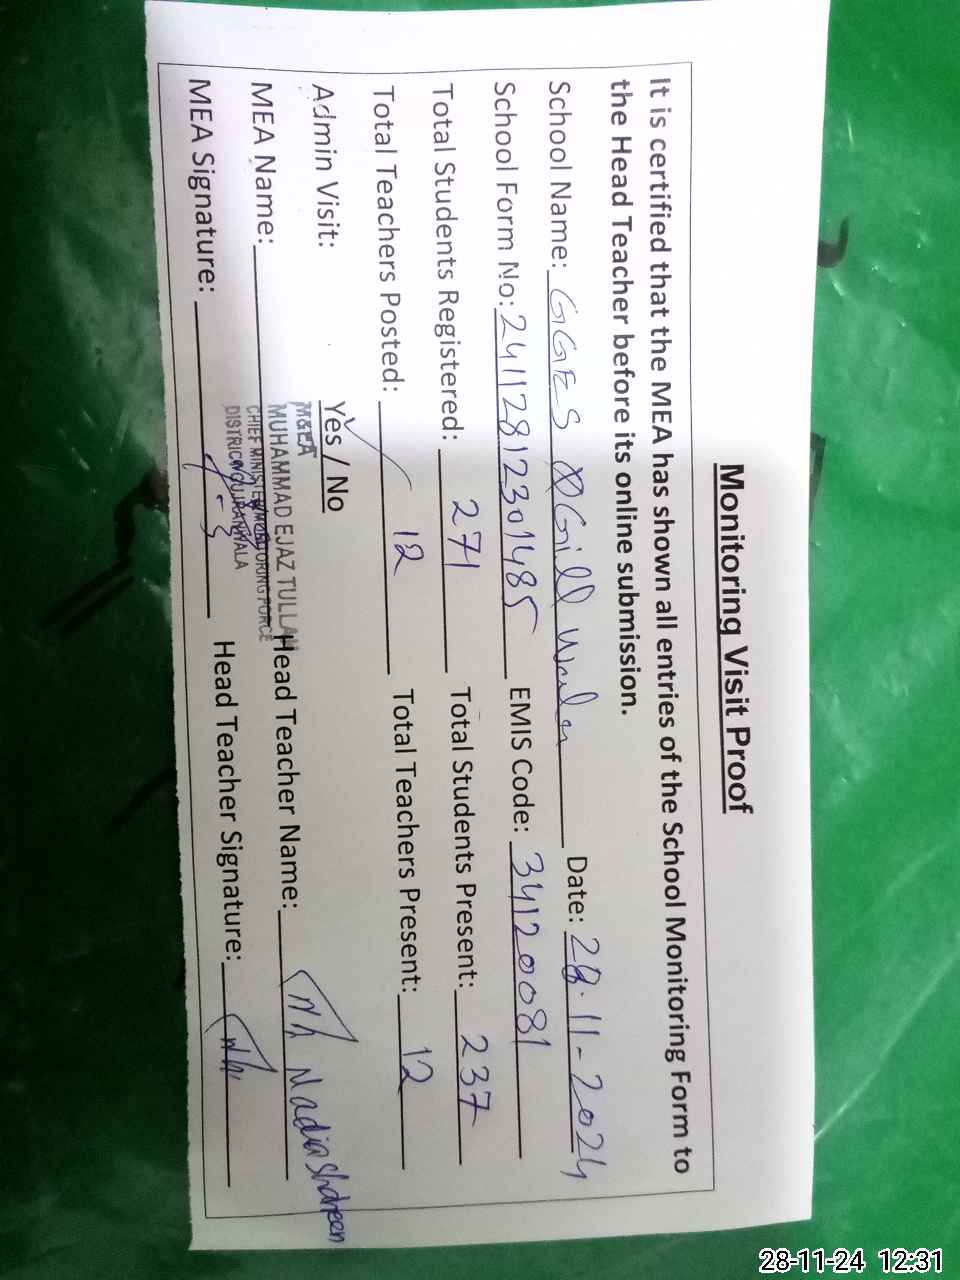 Monitoring Visit Proof
It is certified that the MEA has shown all entries of the School Monitoring Form to
the Head Teacher before its online submission.
School Name: GGES Q Gill Wala Date: 28-11-2024
School Form No: 24112812301485 EMIS Code: 34120081
Total Students Registered: 271 Total Students Present: 237
Total Teachers Posted: 12 Total Teachers Present: 12
Admin Visit: Yes / No
M&EA
MUHAMMAD EJAZ TULLAH
MEA Name: CHIEF MINISTER MONITORING FORCE Head Teacher Name: Nadia Shaheen
DISTRICT GUJRANWALA
MEA Signature: Head Teacher Signature:
28-11-24 12:31